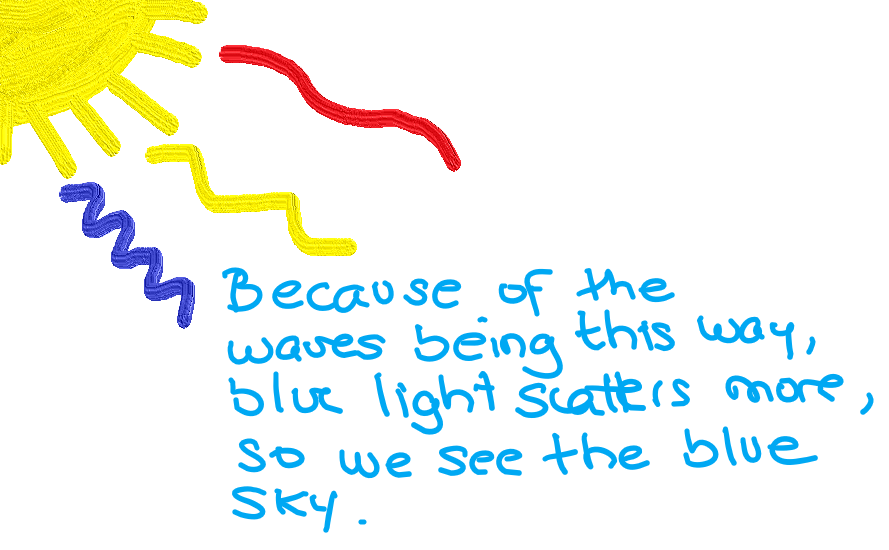 Because of the
waves being this way,
blue light scatters more,
so we see the blue
sky.